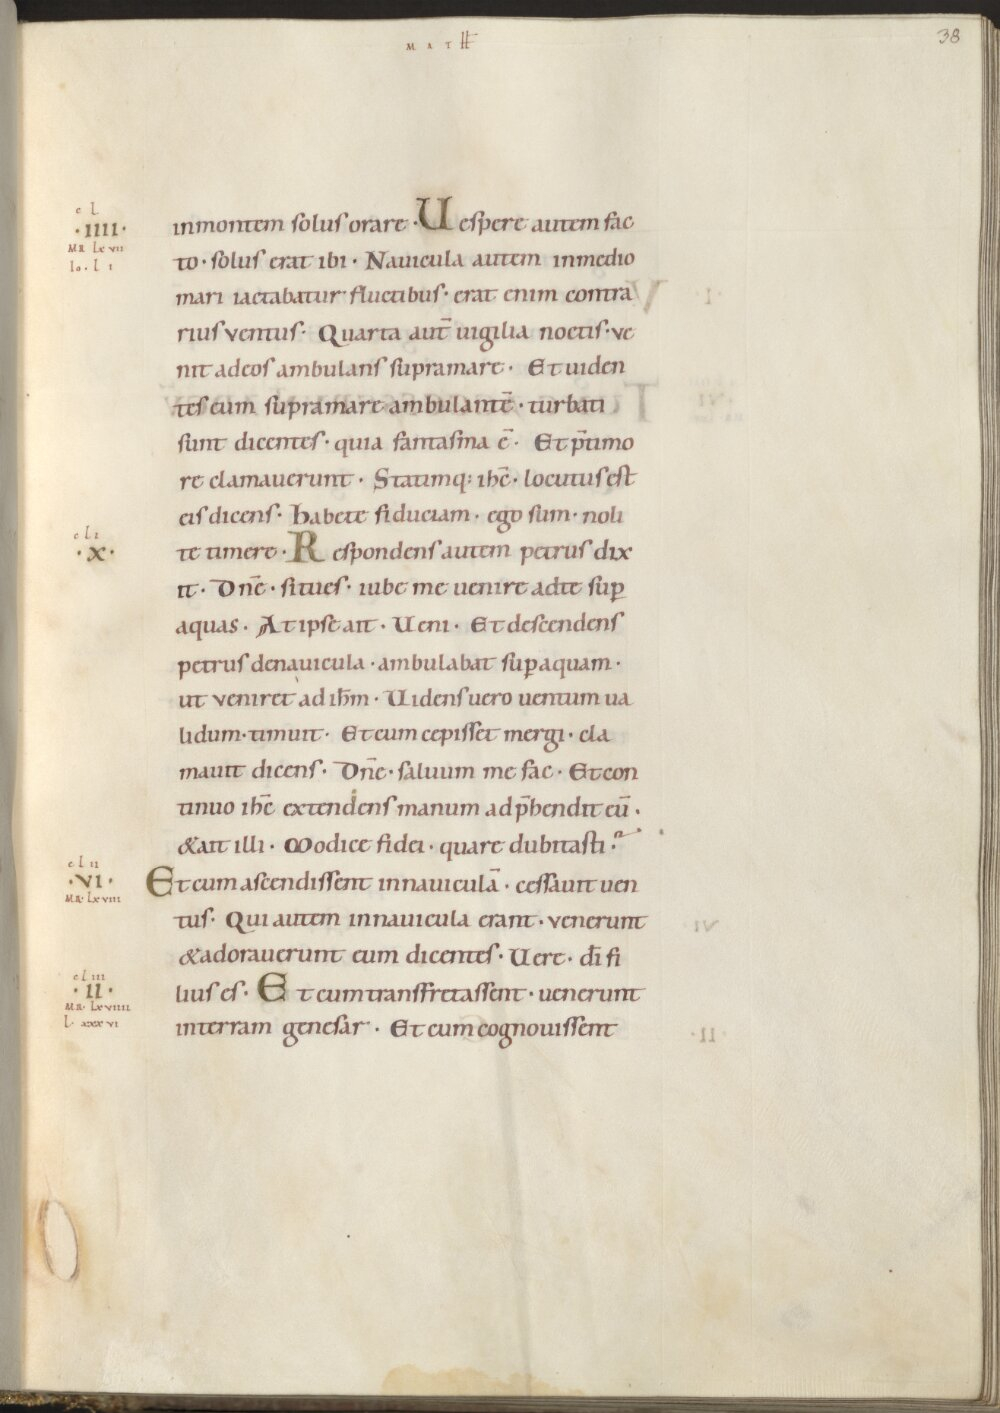 MATH
38
inmontem solus orare · Uespere autem fac
to · solus erat ibi · Nauicula autem inmedio
mari iactabatur fluctibus · erat enim contra
rius ventus · Quarta aut̄ uigilia noctis · ve
nit adeos ambulans supramare · Et uiden
tes eum supramare ambulantē · turbati
sunt dicentes · quia fantasma ē · Et p̄timo
re clamauerunt · Statimq: ihc̄ · locutus est
eis dicens · habete fiduciam · ego sum · noli
te timere · Respondens autem petrus dix
it · Dn̄e · situes · iube me uenire adte suꝑ
aquas · At ipse ait · Ueni · Et descendens
petrus denauicula · ambulabat suꝑaquam ·
ut veniret ad ih̄m · Uidens uero uentum ua
lidum · timuit · Et cum cepisset mergi · cla
mauit dicens · Dn̄e · saluum me fac · Et con
tinuo ihc̄ extendens manum adp̄hendit eū ·
& ait illi · Modice fidei · quare dubitasti ·
Et cum ascendissent innauiculā · cessauit uen
tus · Qui autem innauicula erant · venerunt
& adorauerunt eum dicentes · Uere · dī fi
lius es · Et cum transfretassent · uenerunt
interram genesar · Et cum cognouissent
cl
·IIII·
MR lxvii
Io. l i
cli
·X·
clii
·VI·
MR· lxviii
cliii
·II·
MR· lxviiii
l· xxxvi